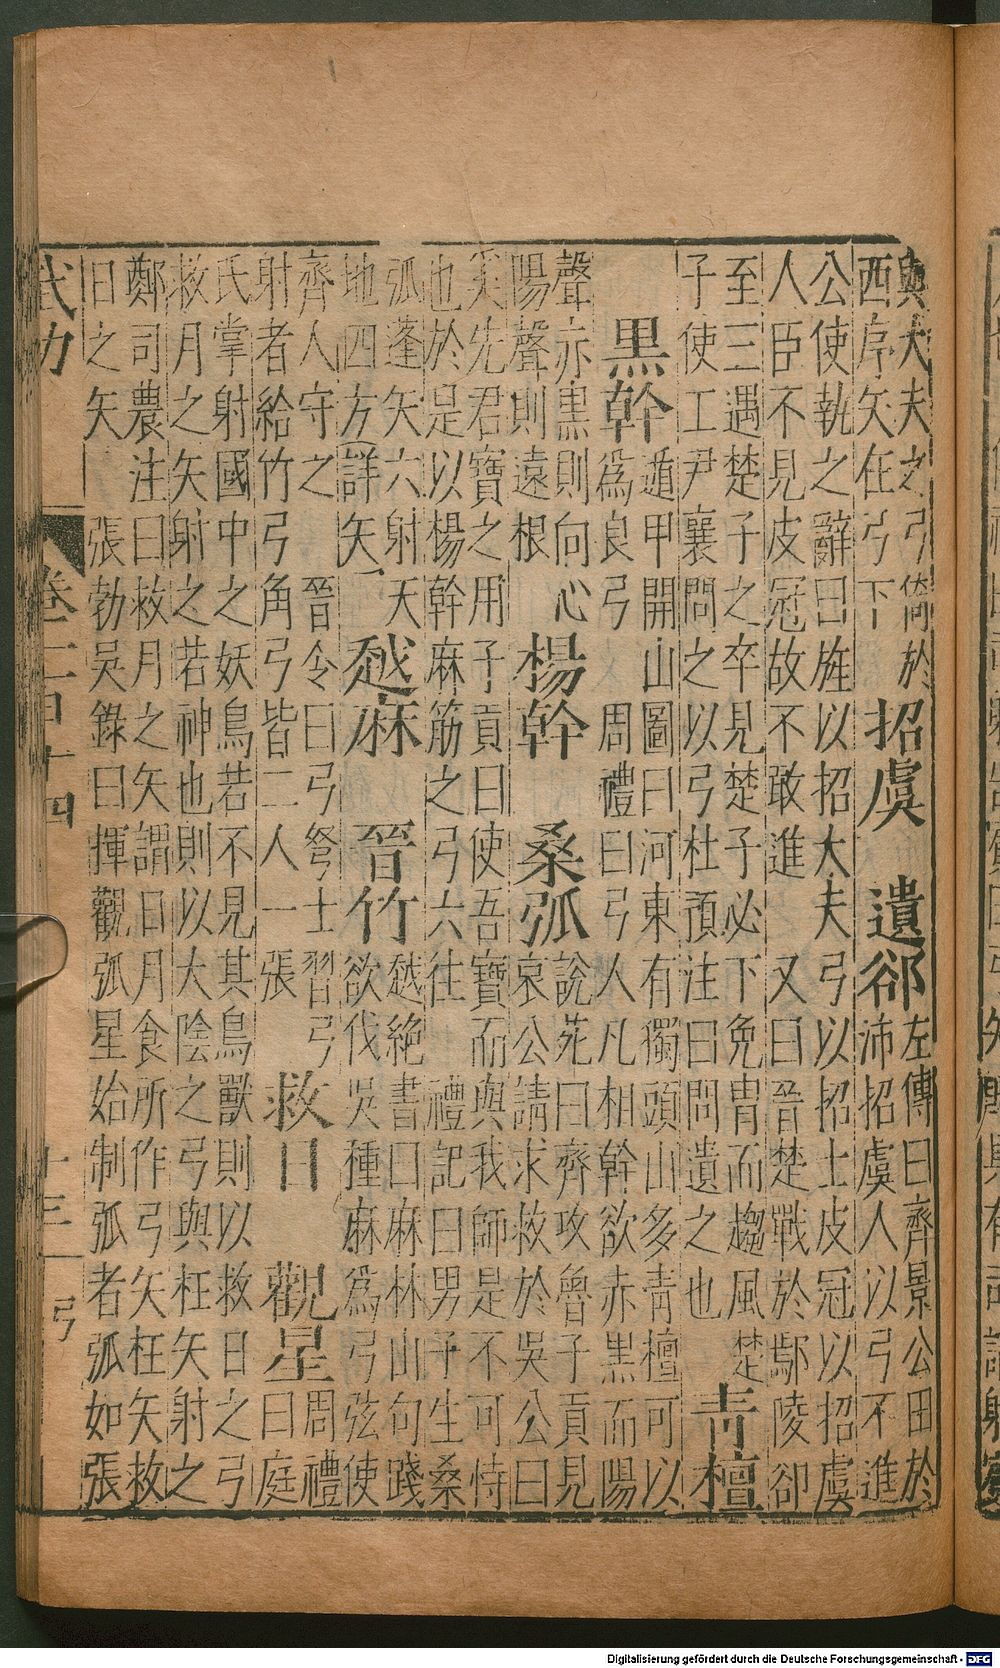 與大夫之弓倚於
西序矢在弓下
招虞　遺卻
左傳曰齊景公田於
沛招虞人以弓不進
公使執之辭曰旌以招大夫弓以招士皮冠以招虞
人臣不見皮冠故不敢進　又曰晉楚戰於鄢陵卻
至三遇楚子之卒見楚子必下免冑而趨風楚
子使工尹襄問之以弓杜預注曰問遺之也
青檀
黑幹
遁甲開山圖曰河東有獨頭山多青檀可以
為良弓　周禮曰弓人凡相幹欲赤黑而陽
聲亦黑則向心
陽聲則遠根
楊幹　桑弧
說苑曰齊攻魯子貢見
哀公請求救於吳公曰
奚先君寶之用子貢曰使吾寶而與我師是不可恃
也於是以楊幹麻筋之弓六往　禮記曰男子生桑
弧蓬矢六射天
地四方詳矢
越麻　晉竹
越絕書曰麻林山句踐
欲伐吳種麻為弓弦使
齊人守之　晉令曰弓弩士習弓
射者給竹弓角弓皆二人一張
救日　觀星
周禮
曰庭
氏掌射國中之妖鳥若不見其鳥獸則以救日之弓
救月之矢射之若神也則以大陰之弓與枉矢射之
鄭司農注曰救月之矢謂日月食所作弓矢枉矢救
日之矢　張勃吳錄曰揮觀弧星始制弧者弧如張
武功　卷二百十四　十三　弓
Digitalisierung gefördert durch die Deutsche Forschungsgemeinschaft - DFG